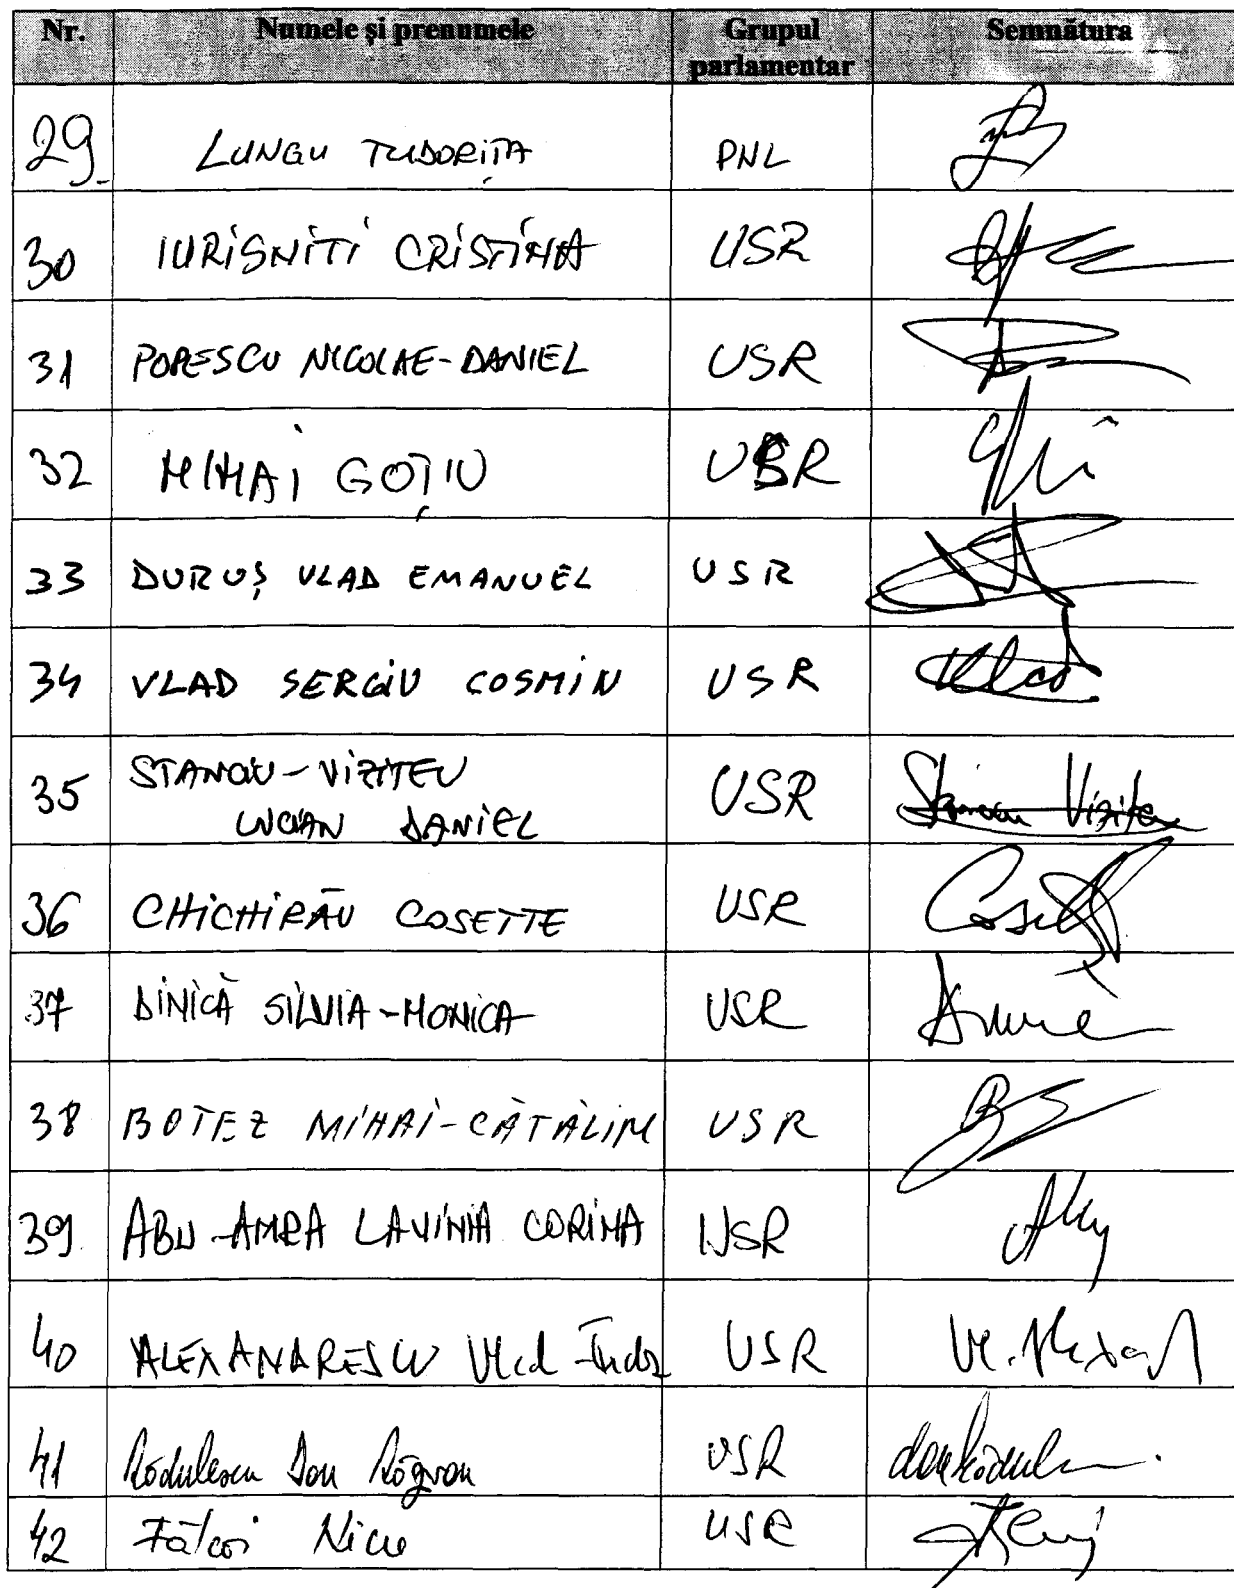 Nr. Numele și prenumele Grupul parlamentar Semnătura
29. LUNGU TUDORIȚA PNL
30 IURIȘNIȚI CRISTINA USR
31 POPESCU NICOLAE-DANIEL USR
32 MIHAI GOȚIU USR
33 DURUȘ VLAD EMANUEL USR
34 VLAD SERGIU COSMIN USR Vlad
35 STANCIU-VIZITEU USR Stanciu Viziteu
LUCIAN DANIEL
36 CHICHIRĂU COSETTE USR Cosette
37 DINICĂ SILVIA-MONICA USR
38 BOTEZ MIHAI-CĂTĂLIN USR
39 ABU-AMRA LAVINIA CORINA USR
40 ALEXANDRESCU Vlad Tudor USR
41 Rădulescu Dan Răzvan USR
42 Fălcoi Nicu USR